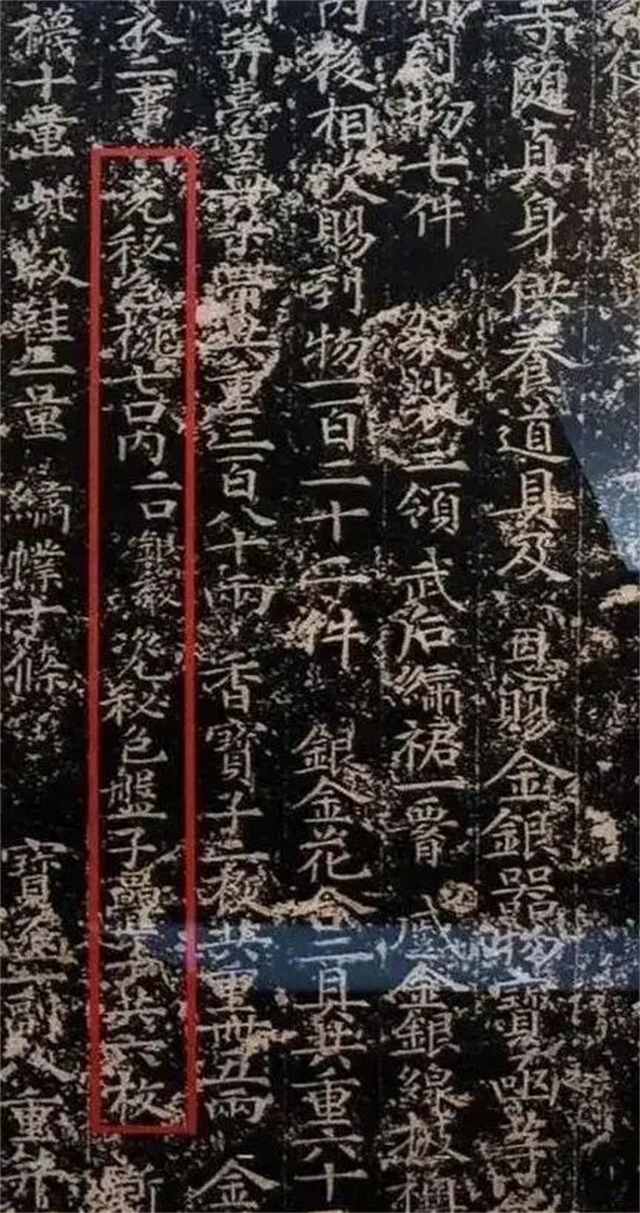 寺隨真身供養道具及恩賜金銀器物寶函等
物七件 袈裟三領 武后繡裙一腰 蹙金銀線披襖
內後相次賜到物一百二十二件 銀金花合二具共重六十
重二百八十兩 香寶子二枚共重卌五兩 金
衣二事 瓷秘色椀七口內二口銀稜 瓷秘色盤子疊子共六枚
襪十量 紫靸鞋二量 繡幞十條 寶函一副八重并